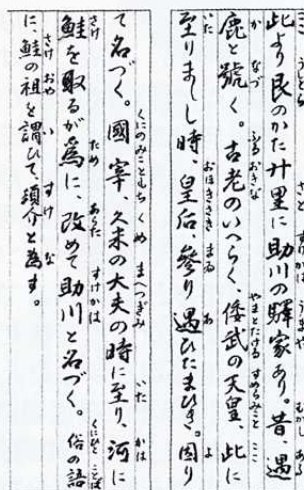 此より艮のかた廿里に助川の驛家あり。昔、遇
鹿と號く。古老のいへらく、倭武の天皇、此に
至りましし時、皇后、參り遇ひたまひき。因り
て名づく。國宰、久米の大夫の時に至り、河に
鮭を取るが爲に、改めて助川と名づく。俗の語
に、鮭の祖を謂ひて、須介と爲す。